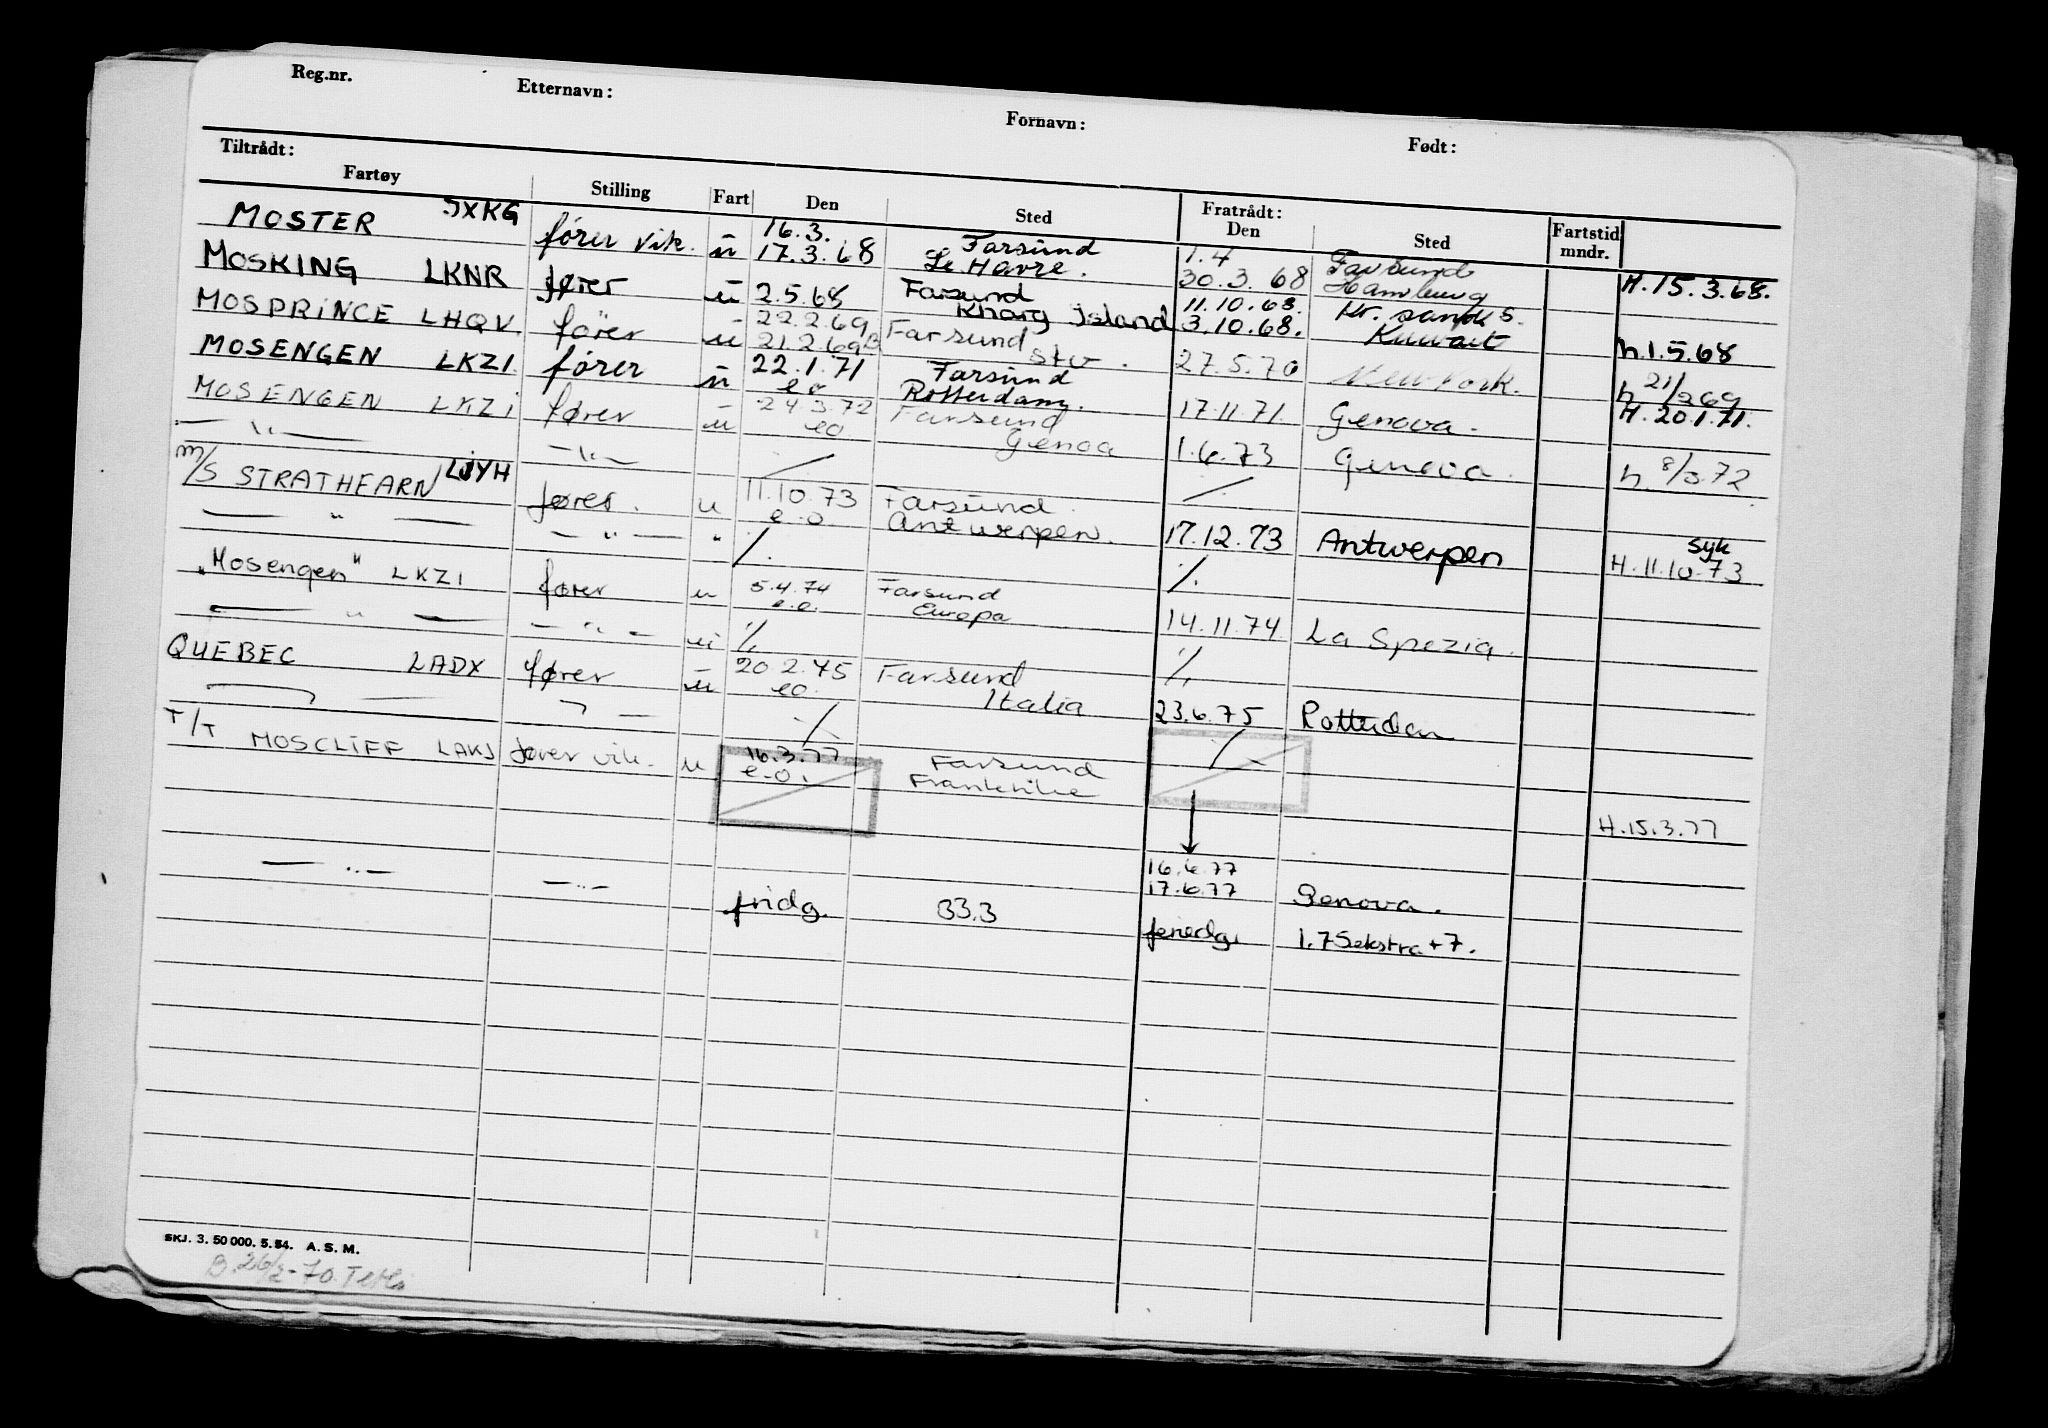 Reg.nr. Etternavn: Fornavn: Født:
Tiltrådt: Fratrådt:
Fartøy Stilling Fart Den Sted Den Sted Fartstid mndr.
MOSTER JXKG fører vik. u 16.3. Farsund 1.4 Farsund
17.3.68 Le Havre. 30.3.68 Hamburg H.15.3.68.
MOSKING LKNR fører u 2.5.68 Farsund 11.10.68. Kr. sand S.
Kharg Island 3.10.68. Kuwait h.1.5.68
MOSPRINCE LHQV. fører u 22.2.69 Farsund
21.2.69 Stv. 27.5.70 New York. h 21/2 69
MOSENGEN LKZI. fører u 22.1.71 Farsund
eo Rotterdam. 17.11.71. Genova. H.20.1.71.
MOSENGEN LKZI fører u 24.3.72 Farsund
eo Genoa 1.6.73 Genova. h. 8/3.72
— " — — " — ⁒ ⁒
M/S STRATHEARN LJYH fører. u 11.10.73 Farsund
e.o. Antwerpen. 17.12.73 Antwerpen syk
H.11.10.73
— " — — " — " ⁒ ⁒
"Mosengen" LKZI fører u 5.4.74 Farsund
e.o. Europa 14.11.74. La Spezia.
— " — — " — u ⁒ ⁒
QUEBEC LADX fører u 20.2.75 Farsund
eo. Italia 23.6.75 Rotterdam
⁒ ⁒
T/T MOSCLIFF LAKJ fører vik. u 16.3.77 Farsund
e.o. Frankrike H.15.3.77
— " — — " — 16.6.77
17.6.77 Genova.
fridg. 33.3 feriedg. 1.75ekstra+7.
SKJ. 3. 50 000. 5. 54. A. S. M.
B. 26/2-70.